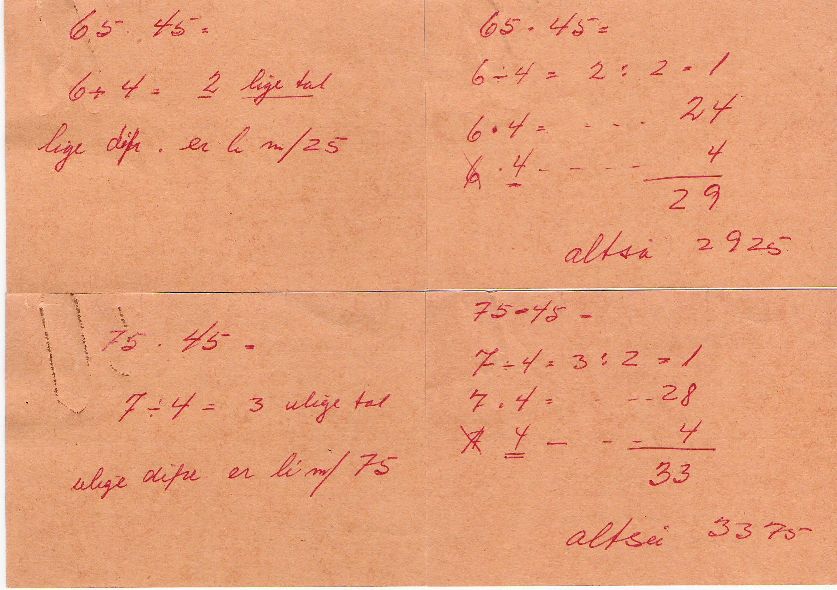 65 · 45 =
6 ÷ 4 = 2 lige tal
lige difr. er li m/25
65 · 45 =
6 ÷ 4 = 2 : 2 = 1
6 · 4 = - - - 24
6 · 4 - - - - - 4
29
altså 2925
75 · 45 =
7 ÷ 4 = 3 ulige tal
ulige difr er li m/75
75 · 45 =
7 ÷ 4 = 3 : 2 = 1
7 · 4 = - - - 28
7 4 - - - 4
33
altså 3375